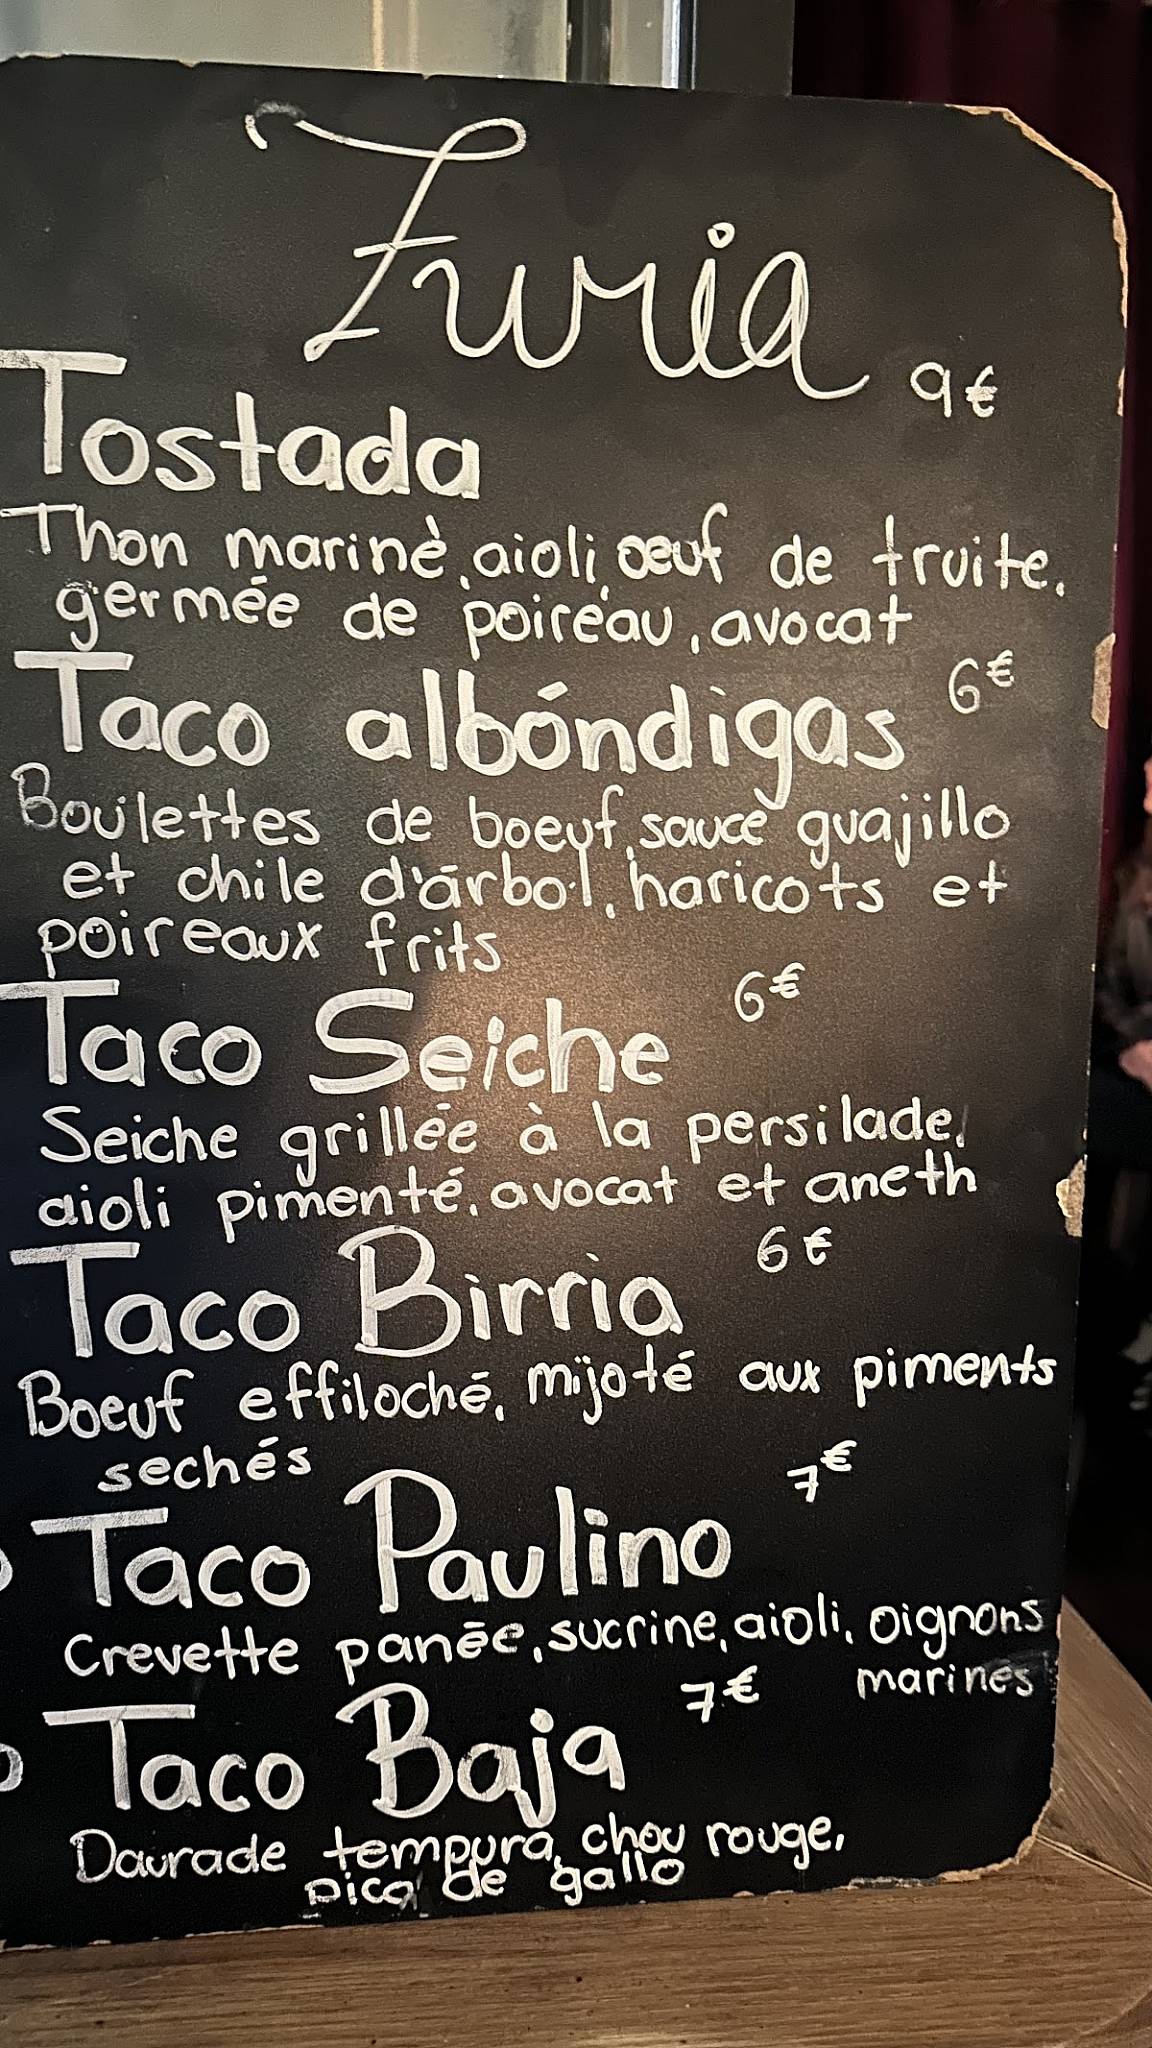 Furia
9€
Tostada
Thon marinè, aioli, oeuf de truite.
germée de poireau, avocat
6€
Taco albóndigas
Boulettes de boeuf, sauce guajillo
et chile d'árbol, haricots et
poireaux frits
6€
Taco Seiche
Seiche grillée à la persilade,
aioli pimenté, avocat et aneth
6€
Taco Birria
Boeuf effiloché, mijoté aux piments
sechés
7€
Taco Paulino
Crevette panée, sucrine, aioli, oignons
marinés
7€
Taco Baja
Daurade tempura, chou rouge,
pico de gallo